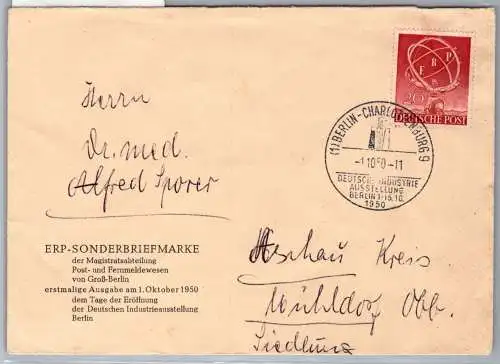 Herrn
Dr. med.
Alfred Sporer
ERP
20
DEUTSCHE POST
(1) BERLIN-CHARLOTTENBURG 9
-1.10.50-11
DEUTSCHE INDUSTRIE
AUSSTELLUNG
BERLIN 1.-15.10.
1950
ERP-SONDERBRIEFMARKE
der Magistratsabteilung
Post- und Fernmeldewesen
von Groß-Berlin
erstmalige Ausgabe am 1. Oktober 1950
dem Tage der Eröffnung
der Deutschen Industrieausstellung
Berlin
Aschau Kreis
Mühldorf Obb.
Siedlung